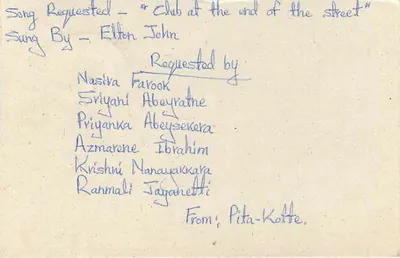 Song Requested - "Club at the end of the street"
Sung By - Elton John
Requested by
Nasira Farook
Sriyani Abeyratne
Priyanka Abeysekera
Azmarene Ibrahim
Krishni Nanayakkara
Ranmali Jayanetti
From: Pita-Kotte.